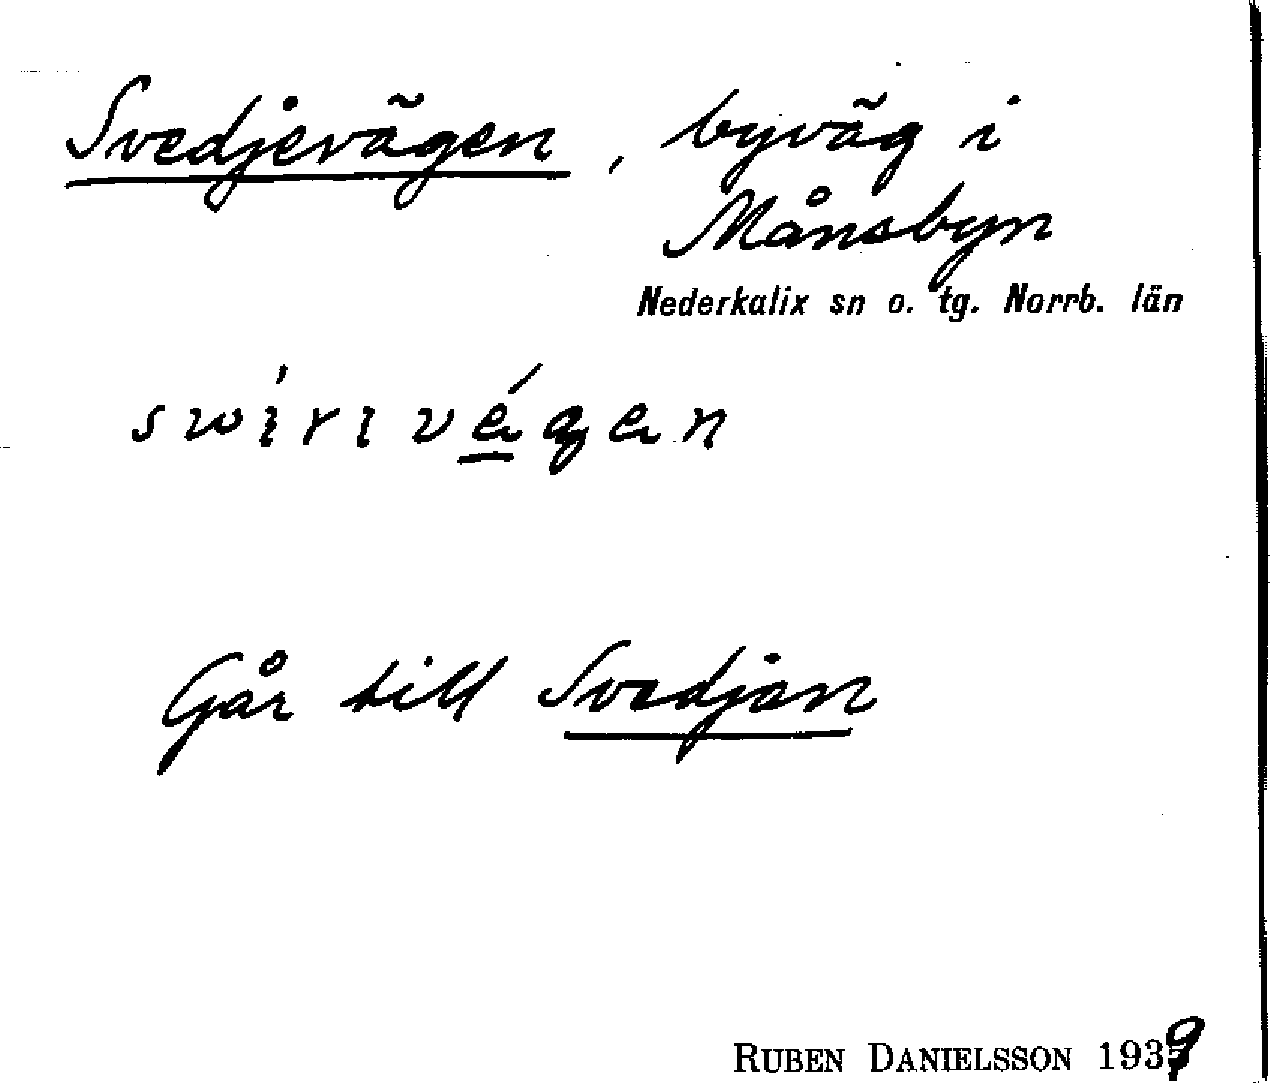 Svedjevägen, byväg i
Månsbyn
Nederkalix sn o. tg. Norrb. län
Går till Svedjan
RUBEN DANIELSSON 1939